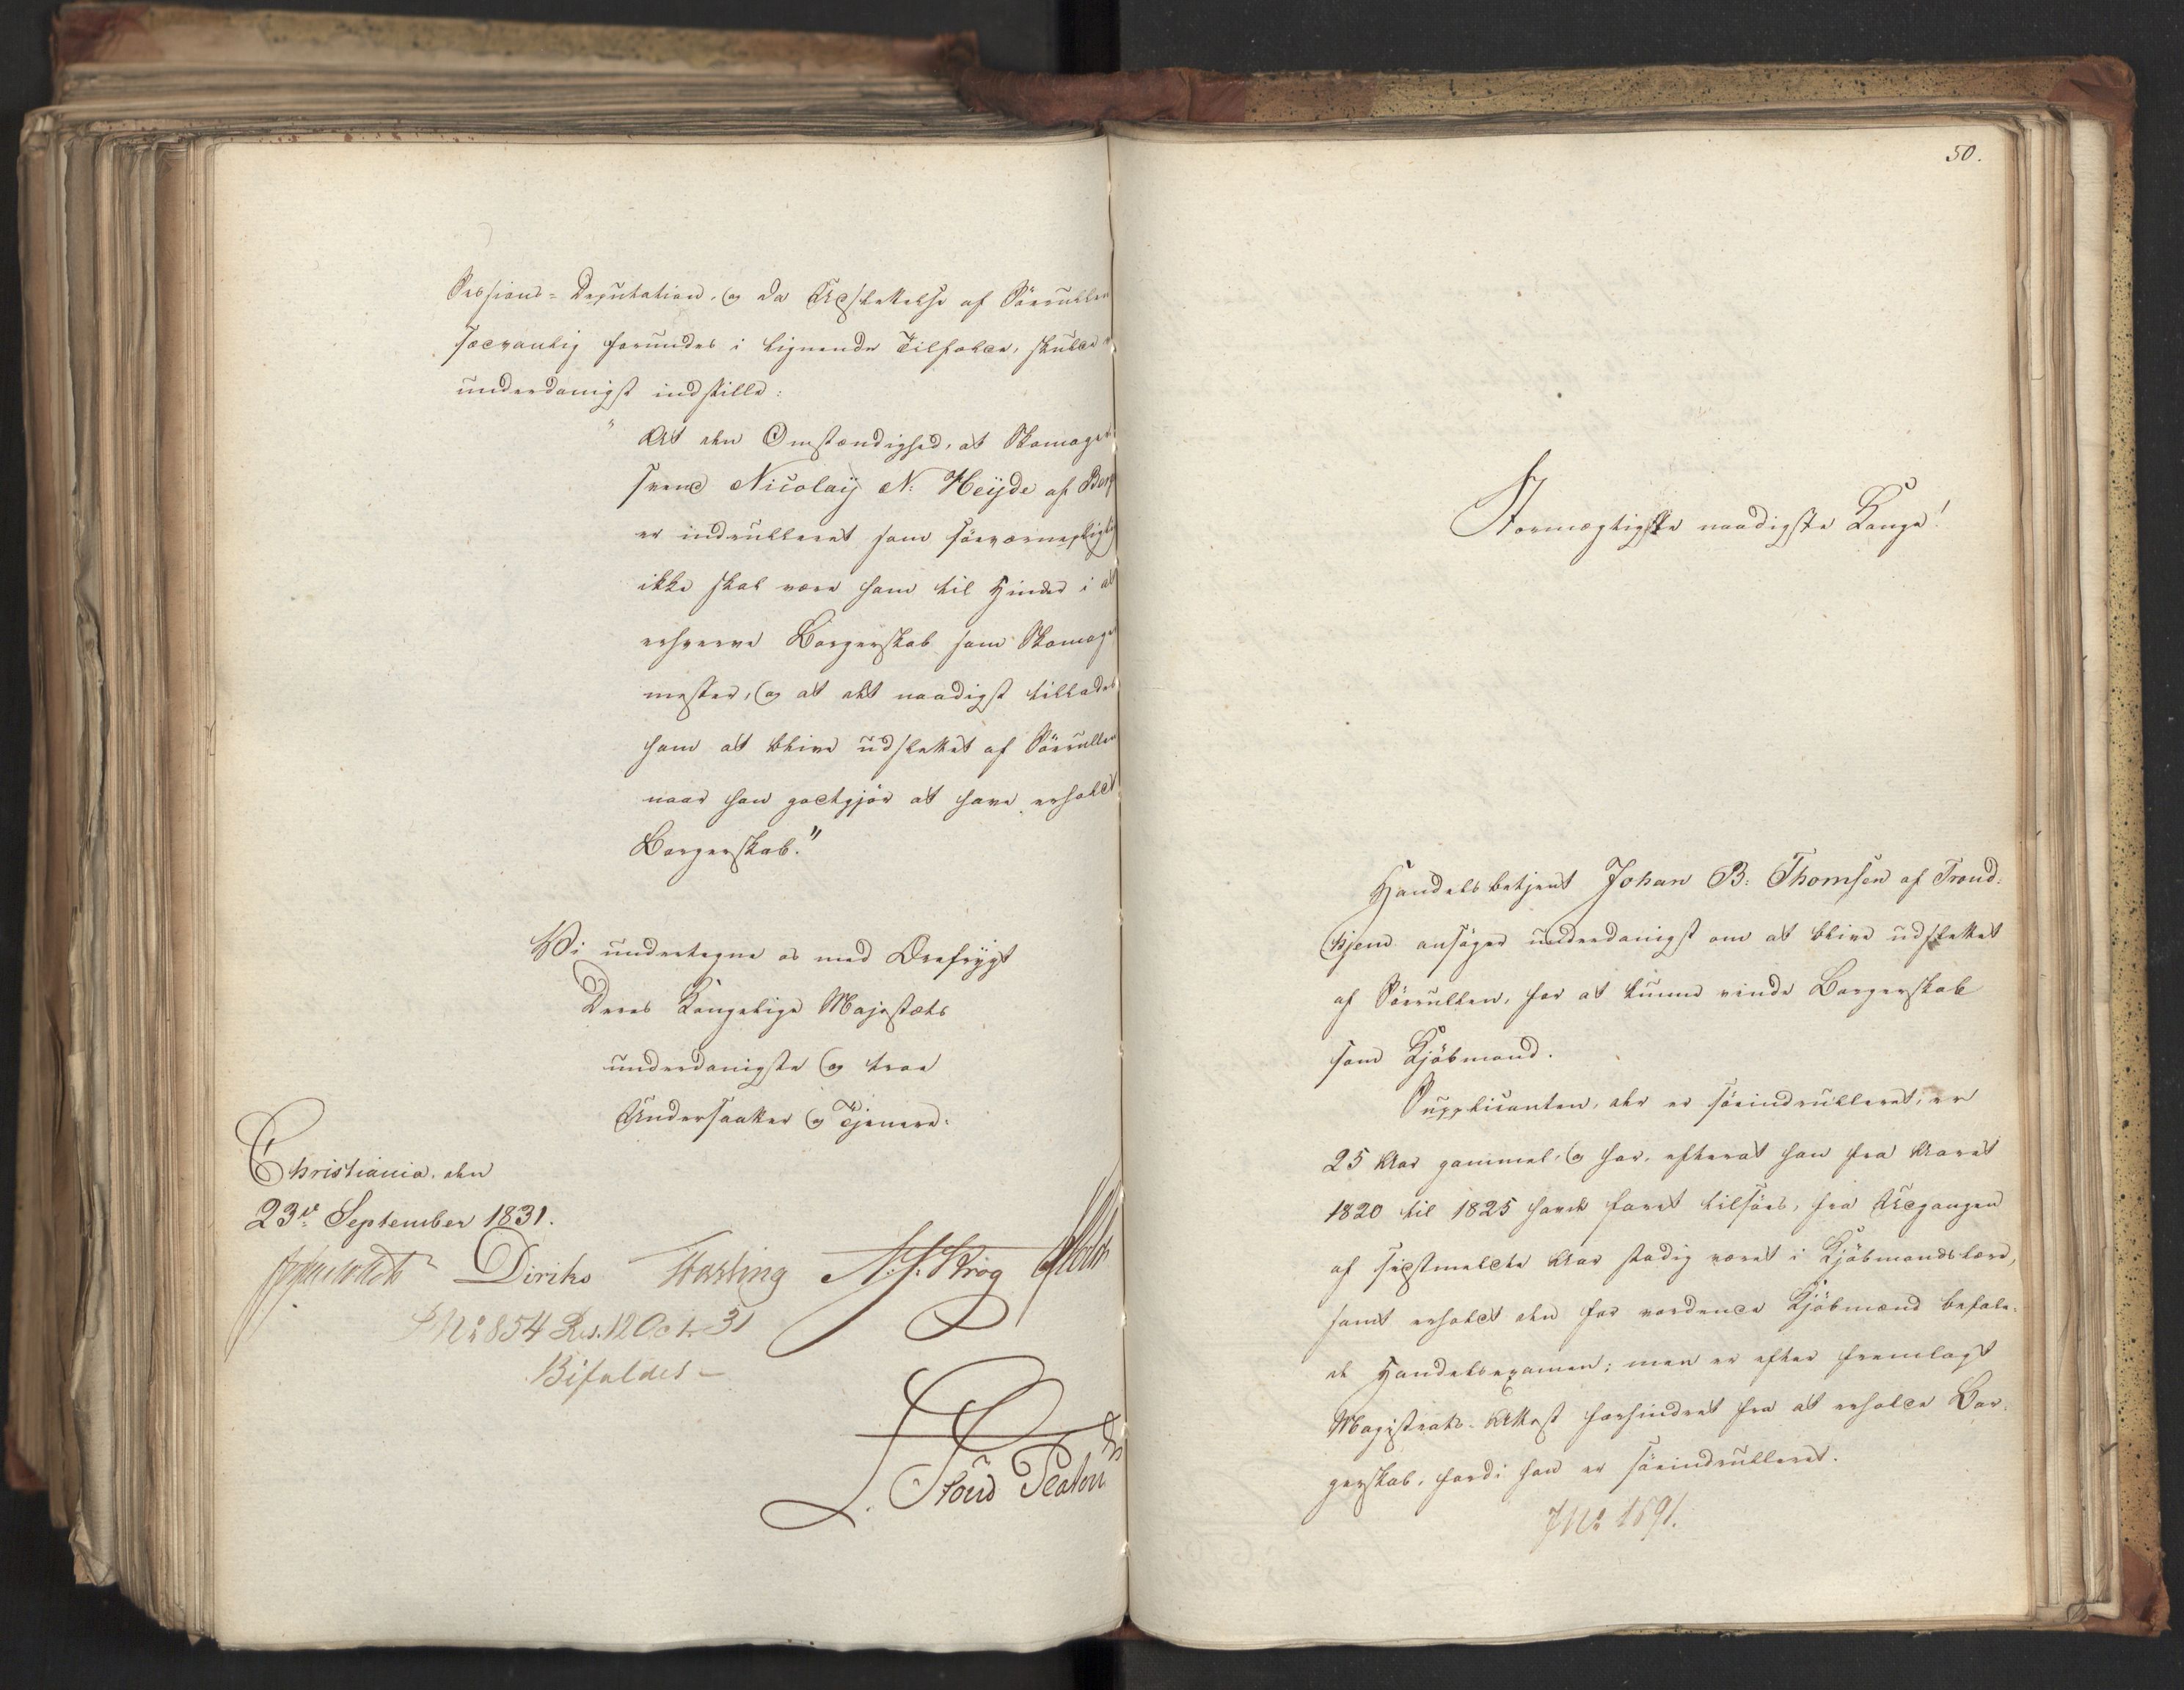 Sessions-Deputation, og da Udslettelse af Söerullen
sædvanlig forundes i lignende Tilfælde, skulde vi
underdanigst indstille:
"At den Omstændighed, at Skomager-
svend Nicolaÿ N: Heÿde af Berg
er indrulleret som söeværnepligtig
ikke skal være ham til Hinder i at
erhverve Borgerskab som Skomager
mester, og at det naadigst tillades
ham at blive udslettet af Söerullen
naar han godtgjör at have erholdt
Borgerskab."
Vi undertegne os med Ærefrygt
Deres Kongelige Majestæts
underdanigste og troe
Undersaatter og Tjenere.
Christiania, den
23de September 1831.
Diriks N. J. Krog
J No 854 Res. 12 Octr 31
Bifaldes –
50.
Stormægtigste naadigste Konge!
Handelsbetjent Johan B: Thomsen af Trond-
hjem ansöger underdanigst om at blive udslettet
af Söerullen, for at kunne vinde Borgerskab
som Kjöbmand.
Supplicanten, der er söeindrulleret, er
25 Aar gammel, og har, efterat han fra Aaret
1820 til 1825 havde faret tilsöes, fra Udgangen
af sidstmeldte Aar stadig været i Kjöbmandslære,
samt erholdt den for vordende Kjöbmænd befale-
de Handelsexamen; men er efter fremlagt
Magistrats-Attest forhindret fra at erholde Bor-
gerskab, fordi han er söeindrulleret.
J No 1691.